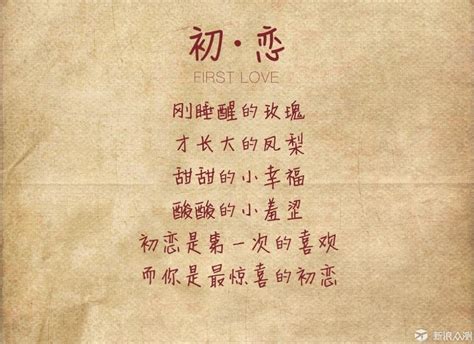 初·恋
FIRST LOVE
刚睡醒的玫瑰
才长大的凤梨
甜甜的小幸福
酸酸的小羞涩
初恋是第一次的喜欢
而你是最惊喜的初恋
新浪众测